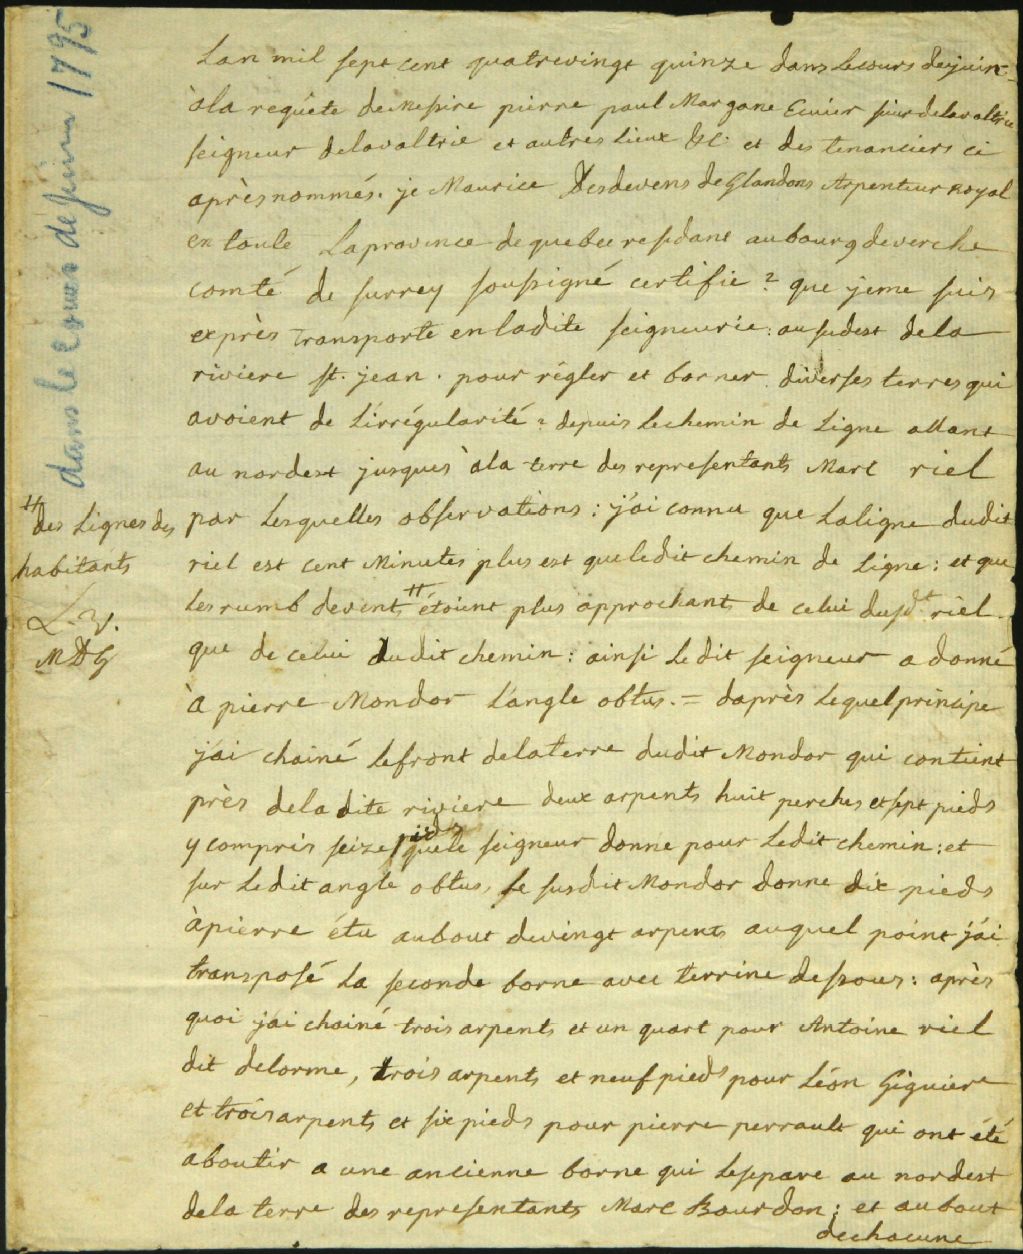 dans le cours de Juin 1795
Lan mil sept cent quatrevingt quinze dans lecours dejuin
àla requête deMessire pierre paul Margane Ecuier sieur delavaltrie
seigneur delavaltrie et autres Lieux &c. et des tenanciers ci
après nommés. je Maurice Desdevens deGlandons Arpenteur Royal
en toute Laprovince de quebec residant aubourg deverche
comté de surrey soussigné certifie ? que jeme suis
exprès transporté en ladite seigneurie : au sudest dela
riviere st. jean . pour régler et borner diverses terres qui
avoient de L'irrégularité ? depuis lechemin de Ligne allant
au nordest jusques àla terre des representants Marc riel
par Lesquelles observations : j'ai connu que Laligne dudit
riel est cent Minutes plus est queledit chemin de Ligne : et que
Les rumb devent # étoient plus approchants de celui dusdt riel
# des Lignes des
habitants
L. V.
MDG
que de celui dudit chemin : ainsi Ledit seigneur a donné
à pierre Mondor L'angle obtus. = daprès Lequel principe
j'ai chainé lefront delaterre dudit Mondor qui contient
près deladite riviere deux arpents huit perches et sept pieds
y compris seize pieds quele seigneur donne pour Ledit chemin : et
sur Ledit angle obtus, Le susdit Mondor donne dix pieds
àpierre étu aubout devingt arpents auquel point j'ai
transposé La seconde borne avec terrine dessous : après
quoi j'ai chainé trois arpents et un quart pour Antoine riel
dit delorme, trois arpents et neuf pieds pour Léon Giguiere
et trois arpents et six pieds pour pierre perrault qui ont été
aboutir a une ancienne borne qui Lesepare au nordest
dela terre des representants Marc Bourdon ; et aubout
dechacune